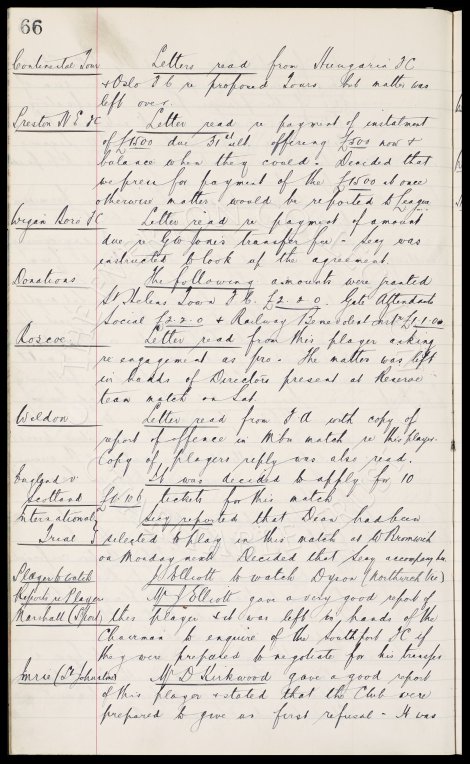 66
Continental Tour Letters read from Hungaria FC
& Oslo F C re proposed Tours but matter was
left over.
Preston N E FC Letter read re payment of instalment
of £1500 due 31st ult. offering £500 now &
balance when they could. Decided that
we press for payment of the £1500 at once
otherwise matter would be reported to League.
Wigan Boro FC Letter read re payment of amount
due re G W Jones transfer fee - Secy was
instructed to look up the agreement.
Donations The following amounts were granted
St Helens Town F C. £2.2.0. Gate Attendants
Social £2.2.0 & Railway Benevolent Instn
Roscoe. Letter read from this player asking
re engagement as pro. The matter was left
in hands of Directors present at Reserve
team match on Sat.
Weldon Letter read from F A with copy of
report of offence in Mbro match re this player.
Copy of players reply was also read.
England v It was decided to apply for 10
Scotland 10/6 tickets for this match
International Secy reported that Dean had been
Trial selected to play in this match at W Bromwich
on Monday next. Decided that Secy accompany him.
Player to Watch J Elliott to watch Dyson (Northwich Vic)
Reports re Player Mr J Elliott gave a very good report of
Marshall (S'port) this player & it was left in hands of the
Chairman to enquire of the Southport FC if
they were prepared to negotiate for his transfer
Imrie (St Johnstone) Mr D Kirkwood gave a good report
of this player & stated that the Club were
prepared to give us first refusal - It was